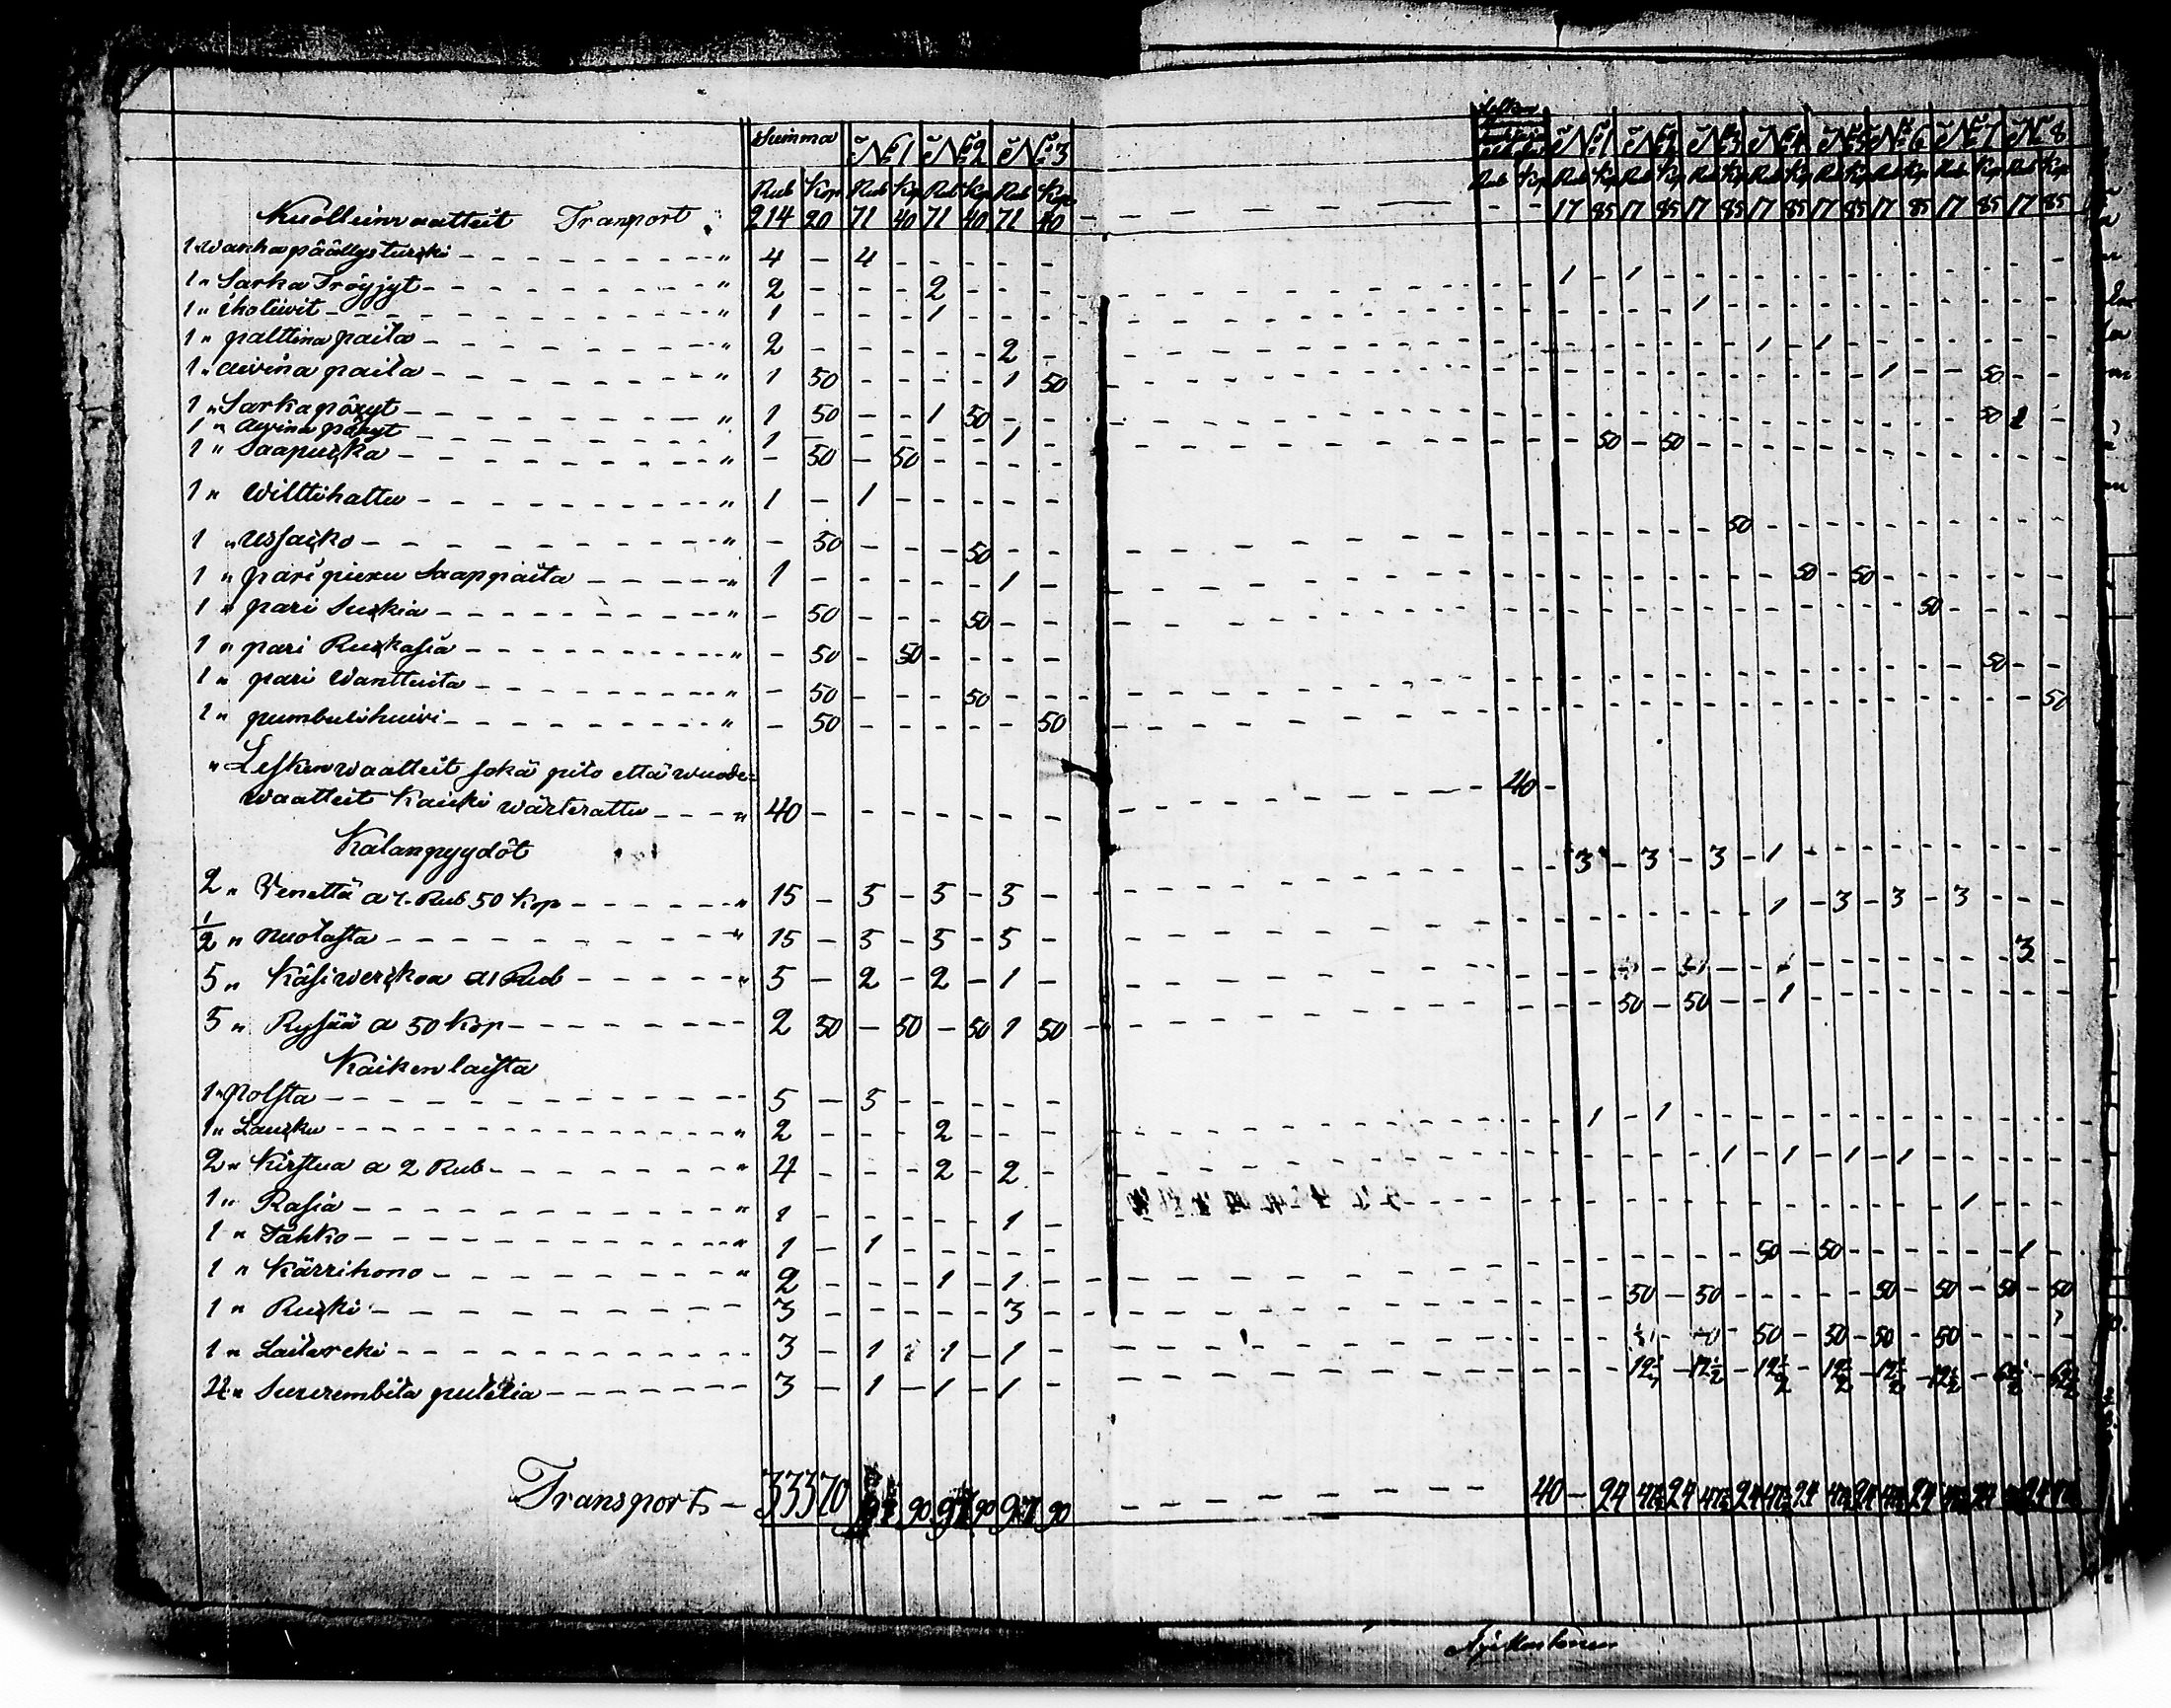 Summa №1 №2 №3
Rub Kop Rub Kop Rub Kop Rub Kop
Kuolleinvaatteit Transport 214 20 71 40 71 40 71 40
1 " wanha päällys turkki " 4 — 4
1 " Sarka Tröyjyt " 2 2
1 " iholiivit " 1 1
1 " palttina paita " 2 2
1 " aivina paita " 1 50 1 50
1 " Sarkapöxyt " 1 50 1 50
1 " aivina pöxyt 1 — 1
1 " Saapuska " — 50 — 50
1 " wilttihattu " 1 — 1
1 " ussakko " — 50 50
1 " pari piexu Saappaita " 1 1
1 " pari Sukkia " — 50 50
1 " pari Rukkasia " — 50 — 50
1 " pari wanttuita " — 50 50
1 " pumbulihuivi " — 50 50
" Lesken waatteit sekä pito että wuode-
waatteit Kaikki wärterattu " 40 —
Kalanpyydöt
2 " Venettä a 7 Rub 50 Kop " 15 — 5 — 5 — 5 —
1/2 " nuotasta " 15 — 5 — 5 — 5 —
5 " Käsiwerkkoa a 1 Rub " 5 — 2 — 2 — 1 —
5 " Rysää a 50 Kop 2 50 — 50 — 50 1 50
Kaikenlaista
1 " Polsta 5 — 5
1 " Laukku " 2 2
2 " Kirstua a 2 Rub " 4 2 — 2
1 " Rasia " 1 1 —
1 " Tahko " 1 — 1
1 " Kärrihono " 2 1 — 1 —
1 " Rukki 3 3
1 " Laitareki 3 — 1 1 — 1 —
4 " Suurembita pulttia 3 — 1 — 1 — 1 —
Transport 333 70 90 97 90 97 90
№1 №2 №3 №4 №5 №6 №7 №8
Rub Kop Rub Kop Rub Kop Rub Kop Rub Kop Rub Kop Rub Kop Rub Kop Rub Kop
17 85 17 85 17 85 17 85 17 85 17 85 17 85 17 85
1 — 1
1
1 — 1
1 50
50 1
50 — 50
50
50 — 50
50
50
50
40 —
3 — 3 — 3 — 1
1 — 3 — 3 — 3
3
50 — 50 — 1
1 — 1
1 1 1 1
1
50 — 50 1
50 — 50 50 — 50 — 50 — 50
50 — 50 — 50 — 50
12½ — 12½ — 12½ — 12½ — 12½ — 12½ — 62½ — 62½
40 — 24 24 24 24 24 24